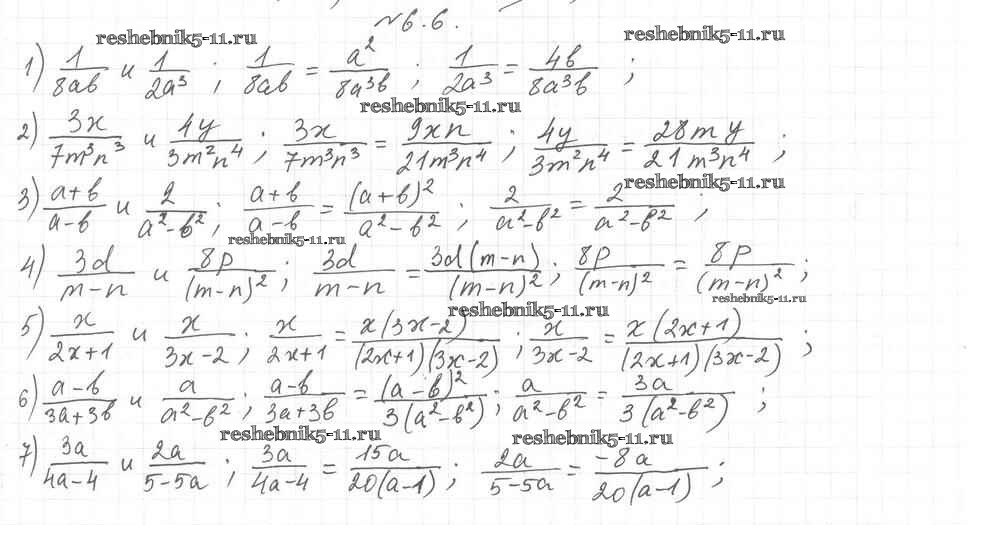 №6.6.
reshebnik5-11.ru reshebnik5-11.ru
1) 1/(8ab) и 1/(2a³) ; 1/(8ab) = a²/(8a³b) ; 1/(2a³) = 4b/(8a³b) ;
reshebnik5-11.ru
2) 3x/(7m³n³) и 4y/(3m²n⁴) ; 3x/(7m³n³) = 9xn/(21m³n⁴) ; 4y/(3m²n⁴) = 28my/(21m³n⁴) ;
reshebnik5-11.ru
3) (a+b)/(a-b) и 2/(a²-b²) ; (a+b)/(a-b) = (a+b)²/(a²-b²) ; 2/(a²-b²) = 2/(a²-b²) ;
reshebnik5-11.ru
4) 3d/(m-n) и 8p/(m-n)² ; 3d/(m-n) = 3d(m-n)/(m-n)² ; 8p/(m-n)² = 8p/(m-n)² ;
reshebnik5-11.ru
reshebnik5-11.ru
5) x/(2x+1) и x/(3x-2) ; x/(2x+1) = x(3x-2)/((2x+1)(3x-2)) ; x/(3x-2) = x(2x+1)/((2x+1)(3x-2)) ;
6) (a-b)/(3a+3b) и a/(a²-b²) ; (a-b)/(3a+3b) = (a-b)²/(3(a²-b²)) ; a/(a²-b²) = 3a/(3(a²-b²)) ;
reshebnik5-11.ru reshebnik5-11.ru
7) 3a/(4a-4) и 2a/(5-5a) ; 3a/(4a-4) = 15a/(20(a-1)) ; 2a/(5-5a) = -8a/(20(a-1)) ;